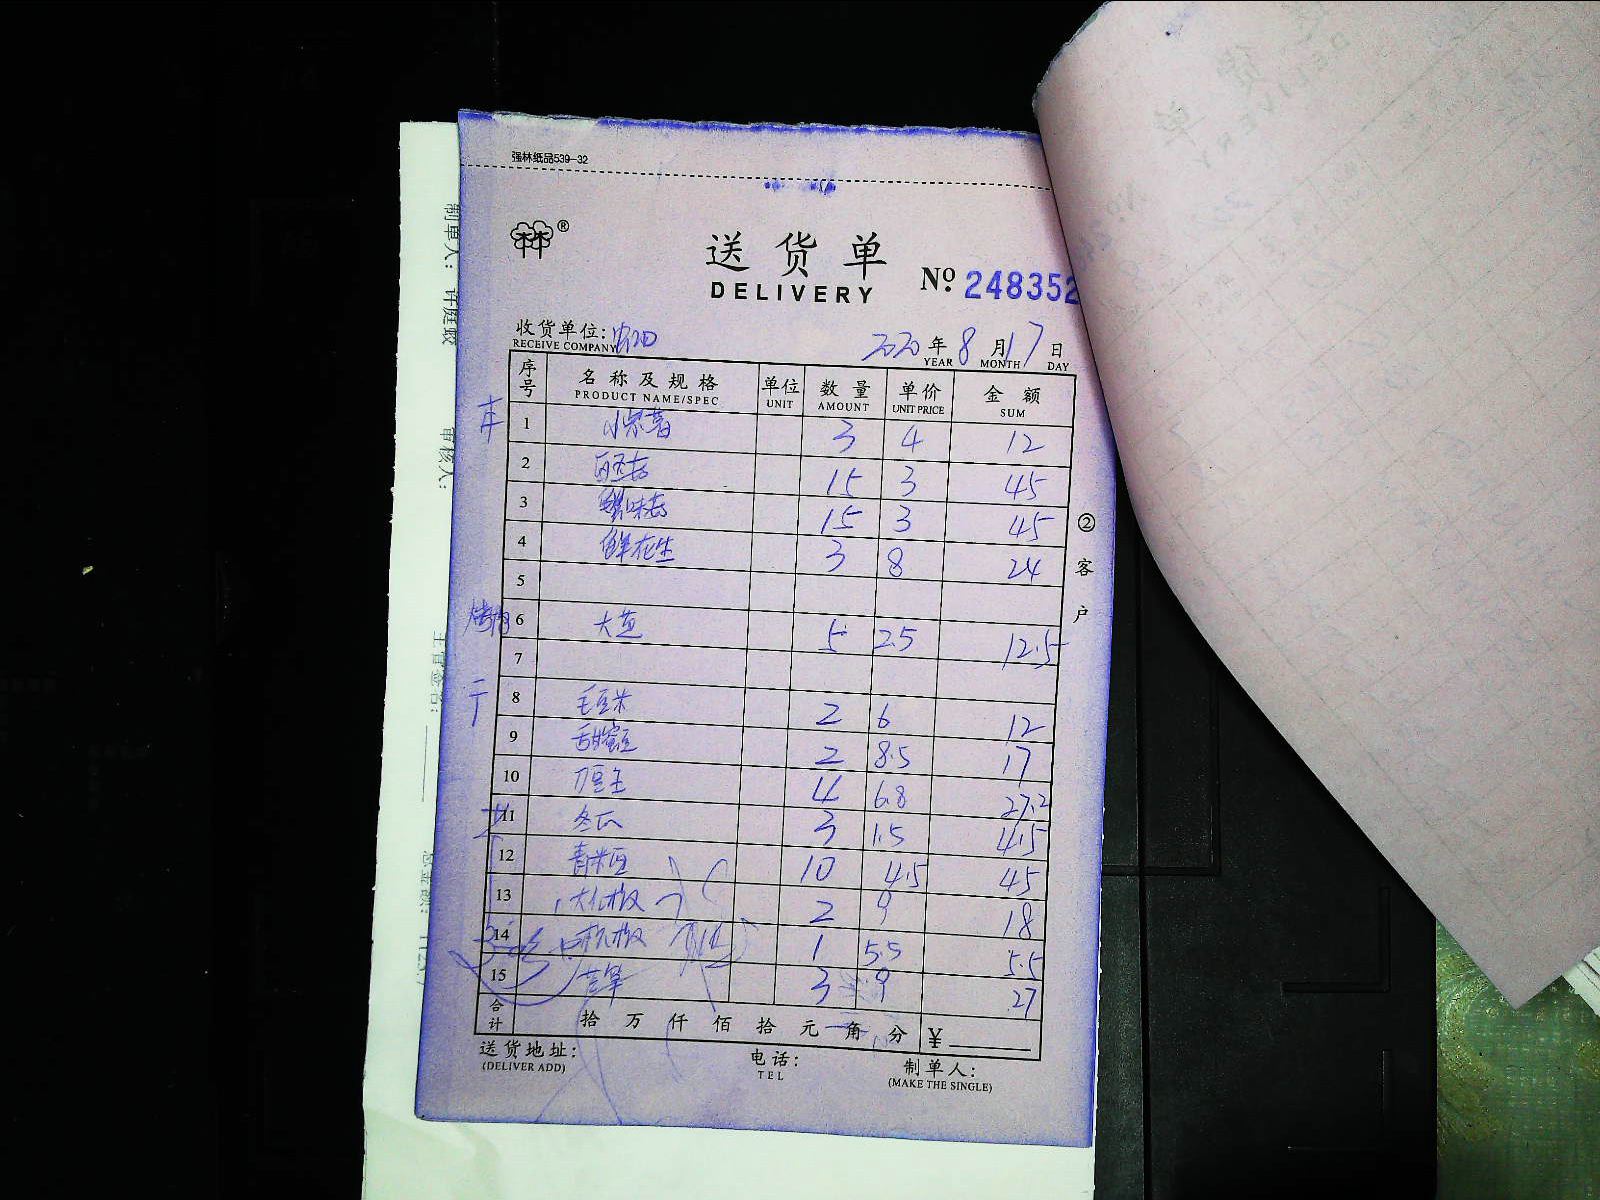 强林纸品539-32
林®
送货单
DELIVERY
№ 248352
收货单位:
RECEIVE COMPANY
2020年8月17日
YEAR MONTH DAY
序号 名称及规格 单位 数量 单价 金额
PRODUCT NAME/SPEC UNIT AMOUNT UNIT PRICE SUM
1 3 4 12
2 15 3 45
3 蟹味菇 15 3 45
4 鲜花生 3 8 24
5
烤鸭 6 大葱 5 2.5 12.5
7
二 8 毛豆米 2 6 12
9 甜蜜豆 2 8.5 17
10 刀豆 4 6.8 27.2
11 冬瓜 3 1.5 4.5
12 青米豆 10 4.5 45
13 大红椒 2 9 18
14 杭椒 1 5.5 5.5
15 3 9 27
合计 拾 万 仟 佰 拾 元 角 分 ¥
送货地址:
(DELIVER ADD)
电话:
TEL
制单人:
(MAKE THE SINGLE)
②客户
制单人:
审核人:
主管签名:
总金额: